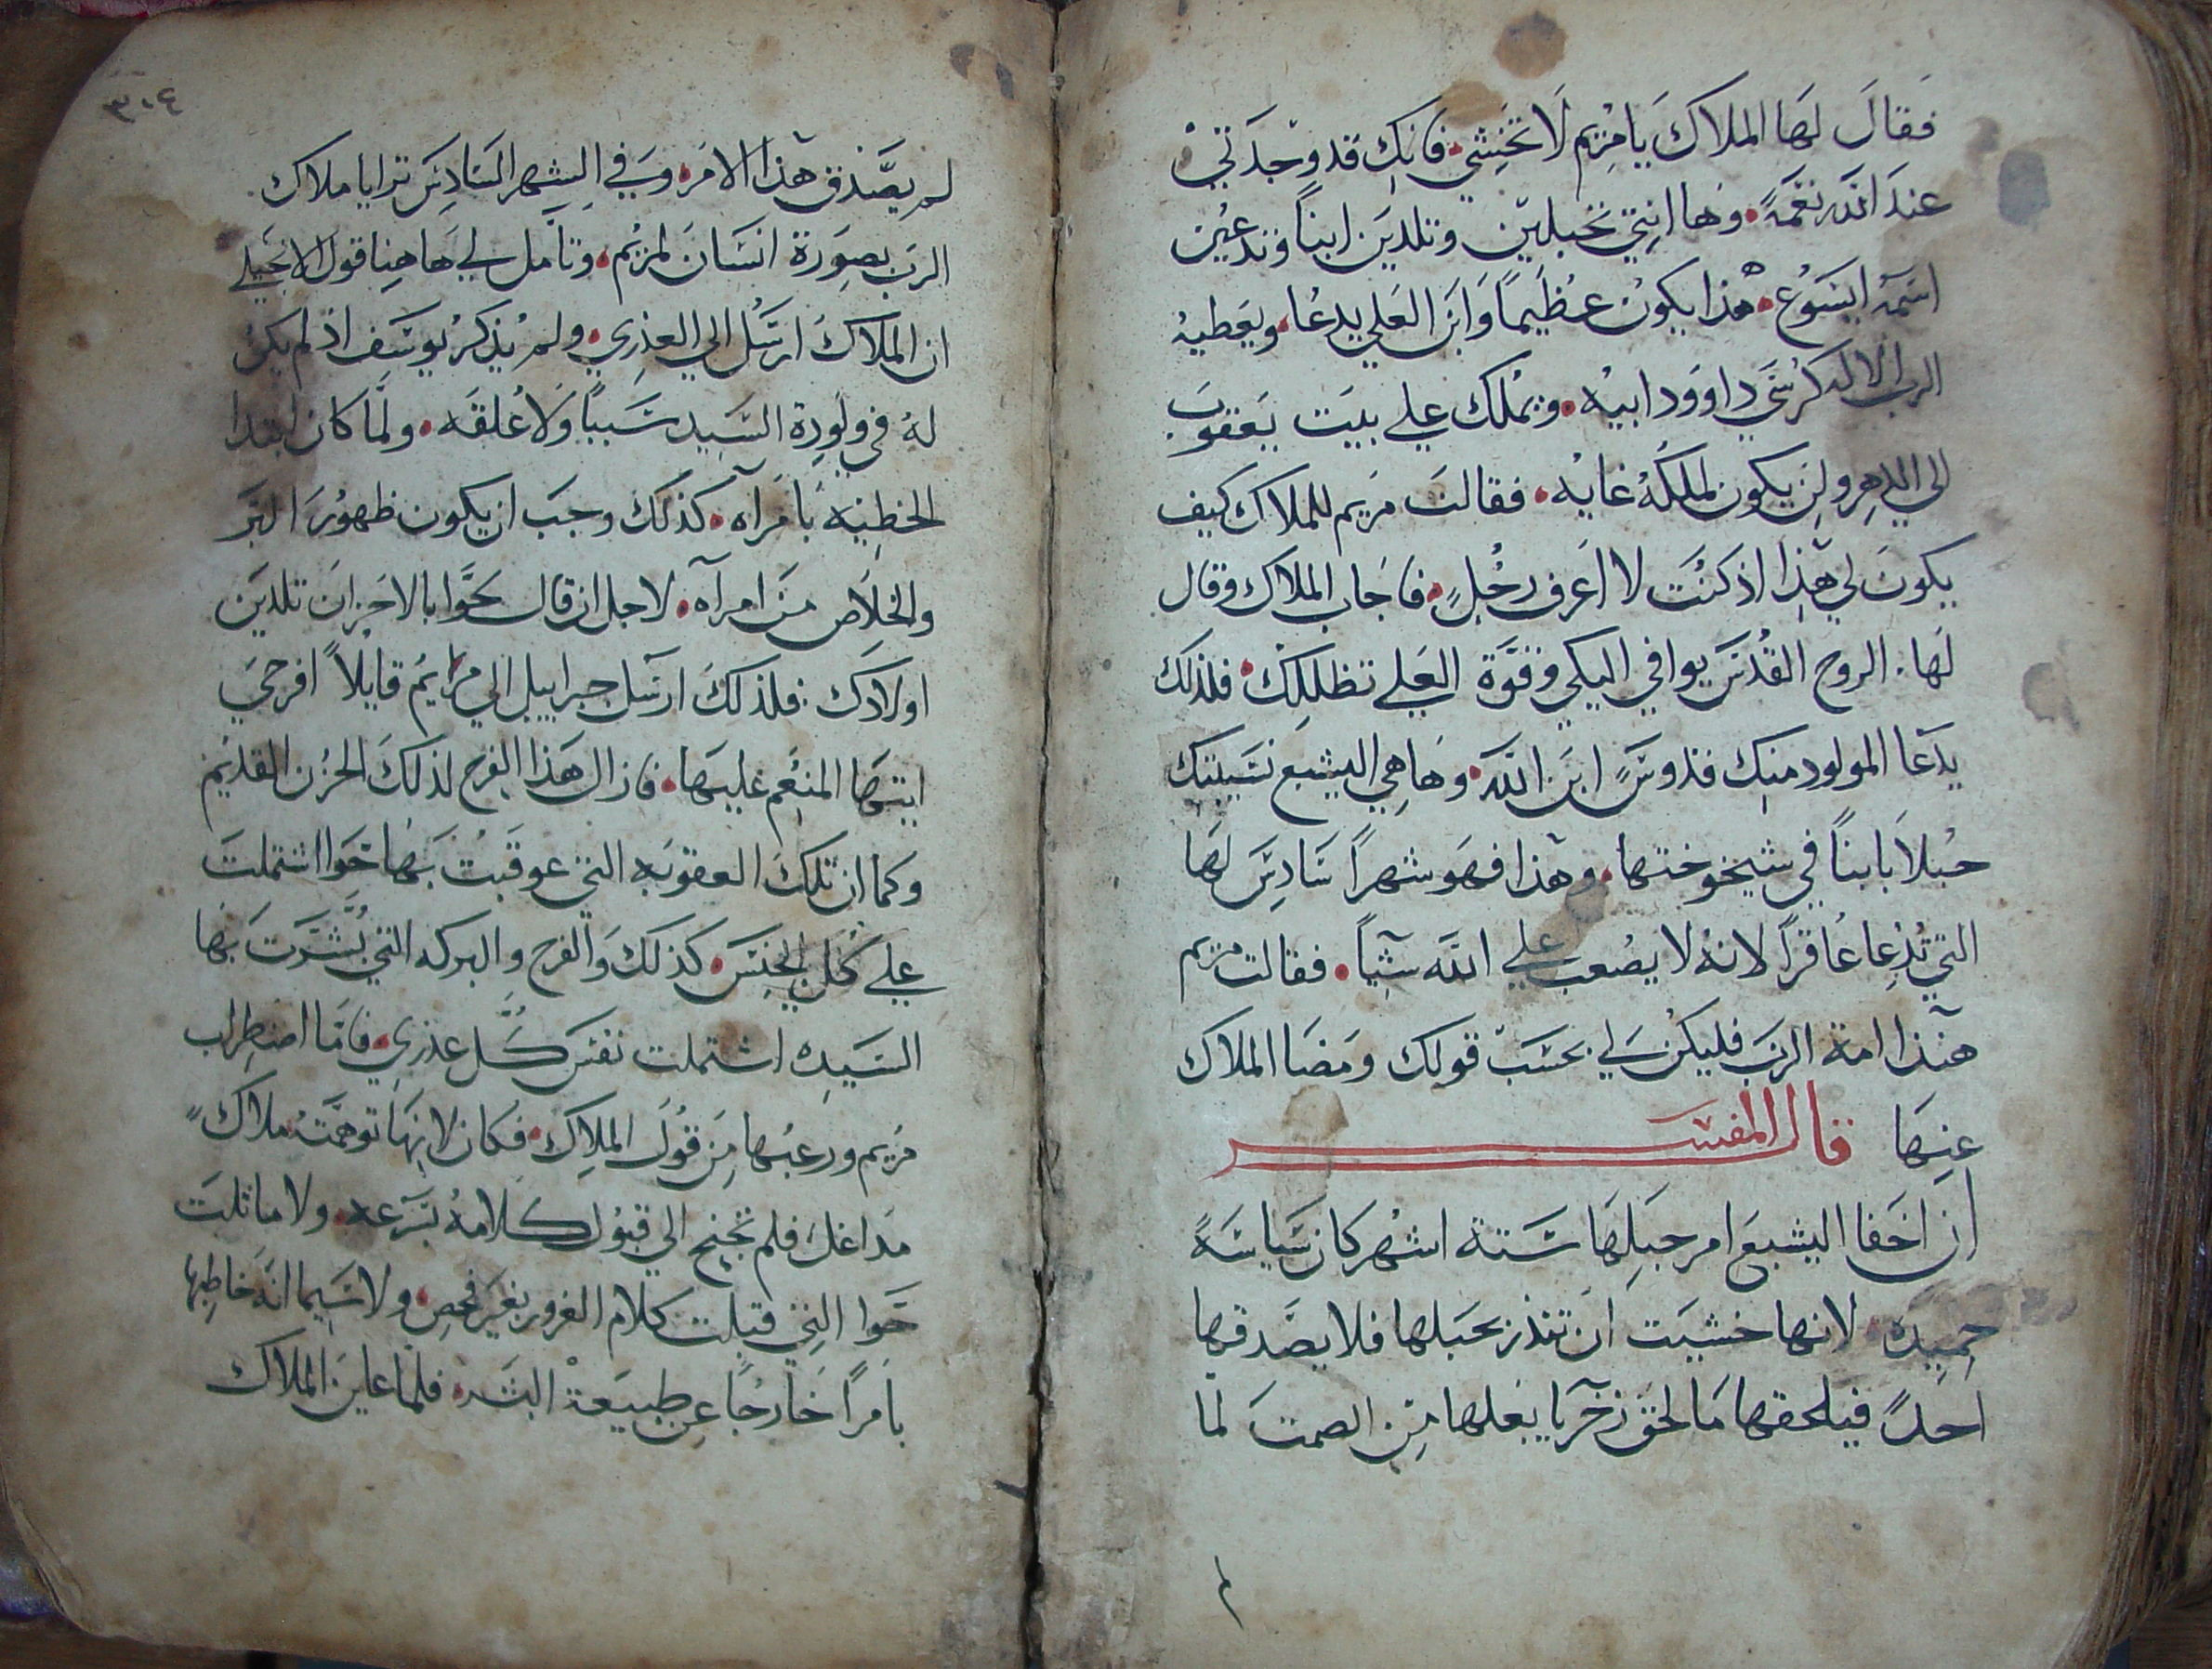 فقال لها الملاك يا مريم لا تخشي • فانك قد وجدتي
عند الله نعمة • وها انتي تحبلين وتلدين ابنا وتدعين
اسمه ايسوع • هذا يكون عظيما وابن العلي يدعا • ويعطيه
الرب الاله كرسي داوود ابيه • ويملك علي بيت يعقوب
الي الدهر ولن يكون لملكه غايه • فقالت مريم للملاك كيف
يكون لي هذا اذ كنت لا اعرف رجل • فاجاب الملاك وقال
لها . الروح القدس يوافي اليكي وقوة العلي تظللك • فلذلك
يدعا المولود منك قدوس ابن الله • وها هي اليشبع نسيبتك
حبلا بابنا في شيخوختها • وهذا فهو شهرا سادس لها
التي تدعا عاقرا لانه لا يصعب علي الله شيا • فقالت مريم
هنذا امة الرب فليكن لي بحسب قولك ومضا الملاك
عنها قال المفسر
ان اخفا اليشبع امر حبلها ستة اشهر كان سياسة
حميده • لانها خشيت ان تنذر بحبلها فلا يصدقها
احد فيلحقها ما لحق زخريا بعلها من الصمت لما
٣٠٤
لم يصدق هذا الامر • وفي الشهر السادس ترايا ملاك
الرب بصورة انسان لمريم • وتامل لي هاهنا قول الانجيلي
ان الملاك ارسل الي العذري • ولم يذكر يوسف اذ لم يكن
له في ولودة السيد سببا ولا علقه • ولما كان ابتدا
الخطيه بامراه • كذلك وجب ان يكون ظهور البر
والخلاص من امراه • لاجل ان قال لحوا بالاحزان تلدين
اولادك : فلذلك ارسل جبراييل الي مريم قايلا افرحي
ايتها المنعم عليها • فازال هذا الفرح لذلك الحزن القديم
وكما ان تلك العقوبه التي عوقبت بها حوا اشتملت
علي كل الجنس • كذلك والفرح والبركه التي بشرت بها
السيده اشتملت نفس كل عذري • فاما اضطراب
مريم ورعبها من قول الملاك • فكان لانها توهمته ملاك
مداغل فلم تجنح الي قبول كلامه بسرعه • ولا ماثلت
حوا التي قبلت كلام الغرور بغير فحص • ولا سيما انه خاطبها
بامرا خارجا عن طبيعة البشر • فلما عاين الملاك